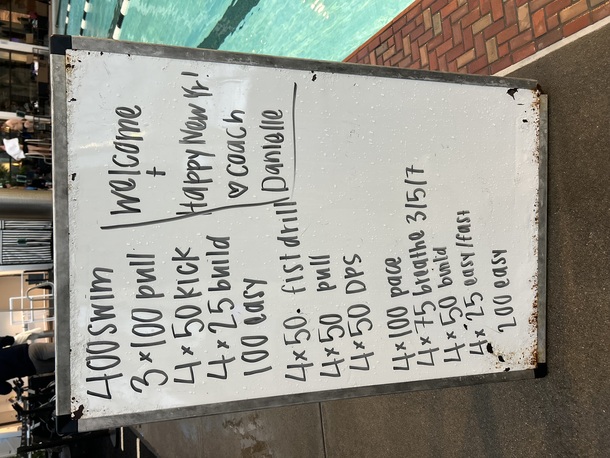 400 swim
3 x 100 pull
4 x 50 kick
4 x 25 build
100 easy
4 x 50 • fist drill
4 x 50 pull
4 x 50 DPS
4 x 100 pace
4 x 75 breathe 3/5/7
4 x 50 build
4 x 25 easy/fast
200 easy
Welcome
+
Happy New Yr!
♡ coach
Danielle